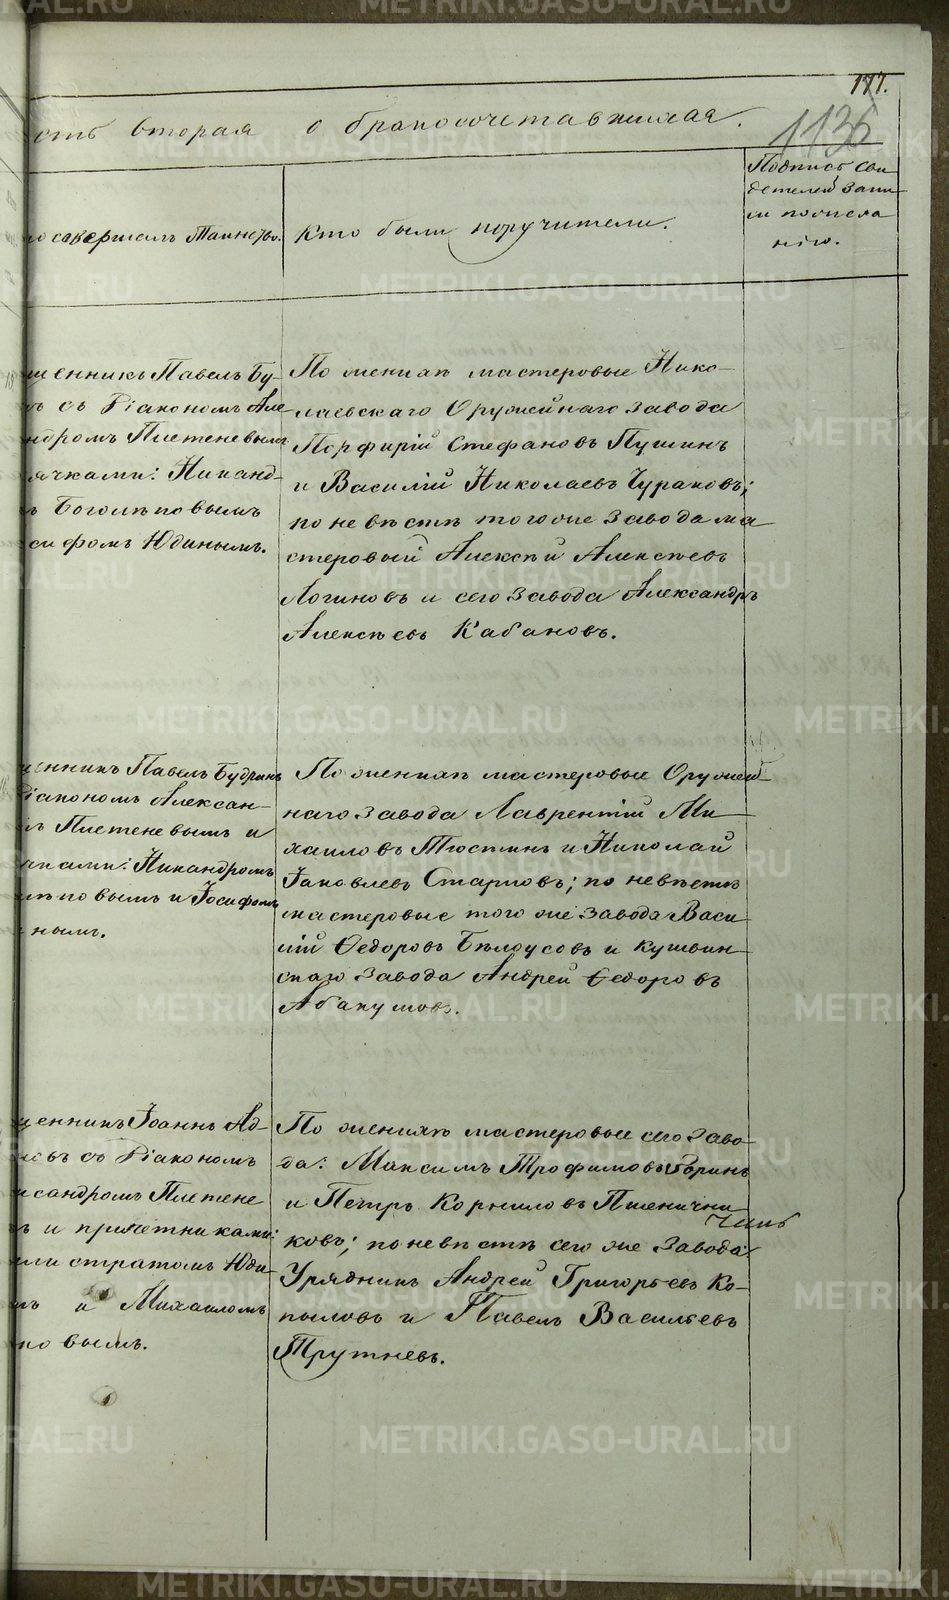 117.
1136
сть вторая о бракосочетавшихся.
то совершалъ Таинство.
Кто были поручители.
Подпись сви
детелей запи
си по жела
нію.
щенникъ Павелъ Бу-
ъ съ Діакономъ Але
ндромъ Плетеневымъ
ячками:Никанд-
ъ Боголѣповымъ
сифомъ Юдинымъ.
По женихѣ мастеровые Нико-
лаевскаго Оружейнаго завода
Порфирій Стефановъ Пушинъ
и Василій Николаевъ Чураковъ;
по невѣстѣ того же завода ма
стеровый Алексѣй Алексѣевъ
Логиновъ и сего завода Александръ
Алексѣевъ Кабановъ.
щенникъ Павелъ Будринъ
Діакономъ Алексан-
ъ Плетеневымъ и
чками: Никандромъ
лѣповымъ и Іосифомъ
нымъ.
По женихѣ мастеровые Оружей-
наго завода Лаврентій Ми
хаиловъ Тюстинъ и Николай
Іаковлевъ Старковъ; по невѣстѣ
мастеровые того же завода Васи
лій Ѳедоровъ Бѣлоусовъ и Кушвин-
скаго завода Андрей Ѳедоровъ
Абакумовъ.
щенникъ Іоаннъ Ад-
овъ съ Діакономъ
ксандромъ Плетене
ъ и причетниками:
листратомъ Юди-
ъ и Михаиломъ
повымъ.
По женихѣ мастеровые сего заво-
да: Максимъ Трофимовъ Горинъ
и Петръ Корниловъ Пшенични
ковъ; по невѣстѣ сего же завода:
Чинъ
Урядникъ Андрей Григорьевъ Ко-
пыловъ и Павелъ Васильевъ
Трутневъ.
METRIKI.GASO-URAL.RU